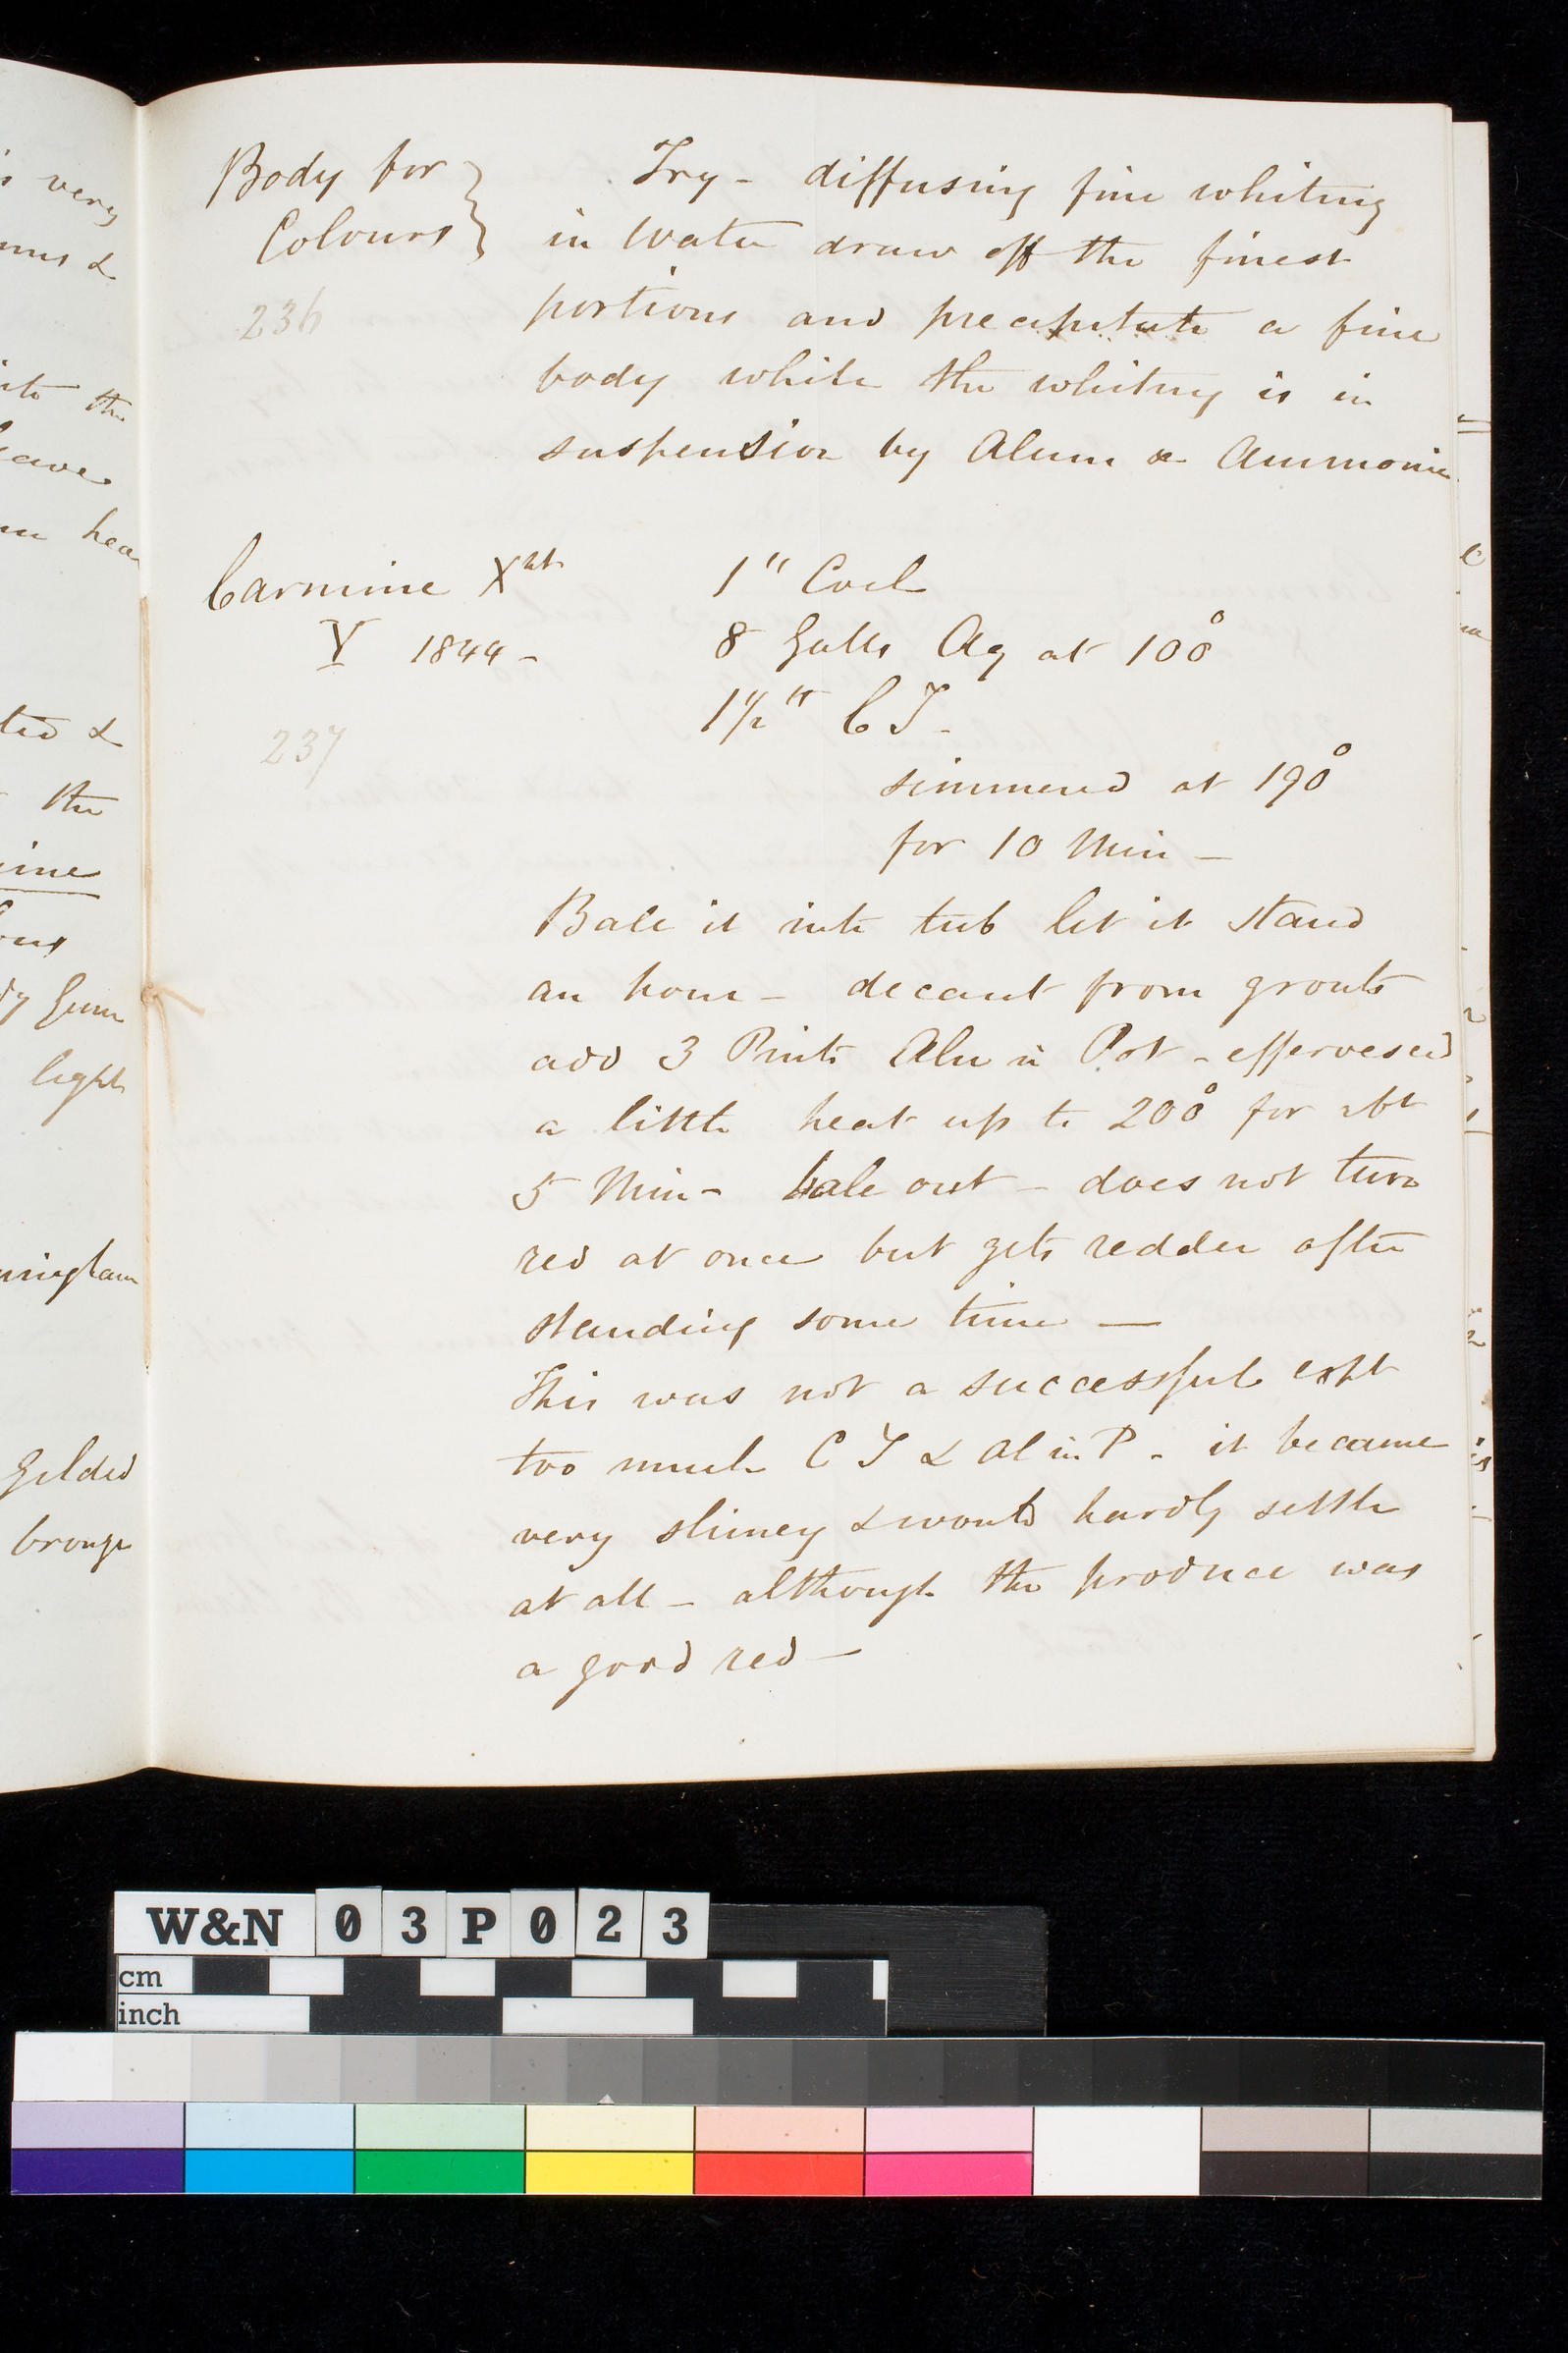 Body for
Colours
236
Try - diffusing fine whiting
in Water draw off the finest
portions and precipitate a fine
body while the whiting is in
suspension by Alum & Ammonia
Carmine
V 1844 -
237
1 " Coch
8 Galls Aq at 100°
1 1/2 " C T -
simmered at 190°
for 10 Min -
Bale it into tub let it stand
an hour - decant from grouts
add 3 Pints Alu in Pot - effervesced
a little heat up to 200° for abt
5 Min - bale out - does not turn
red at once but gets redder after
standing some time —
This was not a successful expt
too much C T & Al in P - it became
very slimey & would hardly settle
at all - although the produce was
a good red —
s very
&
into the
leave
hea
&
the
ine
Gum
light
mingham
Gilded
bronze
W&N 03P023
cm
inch